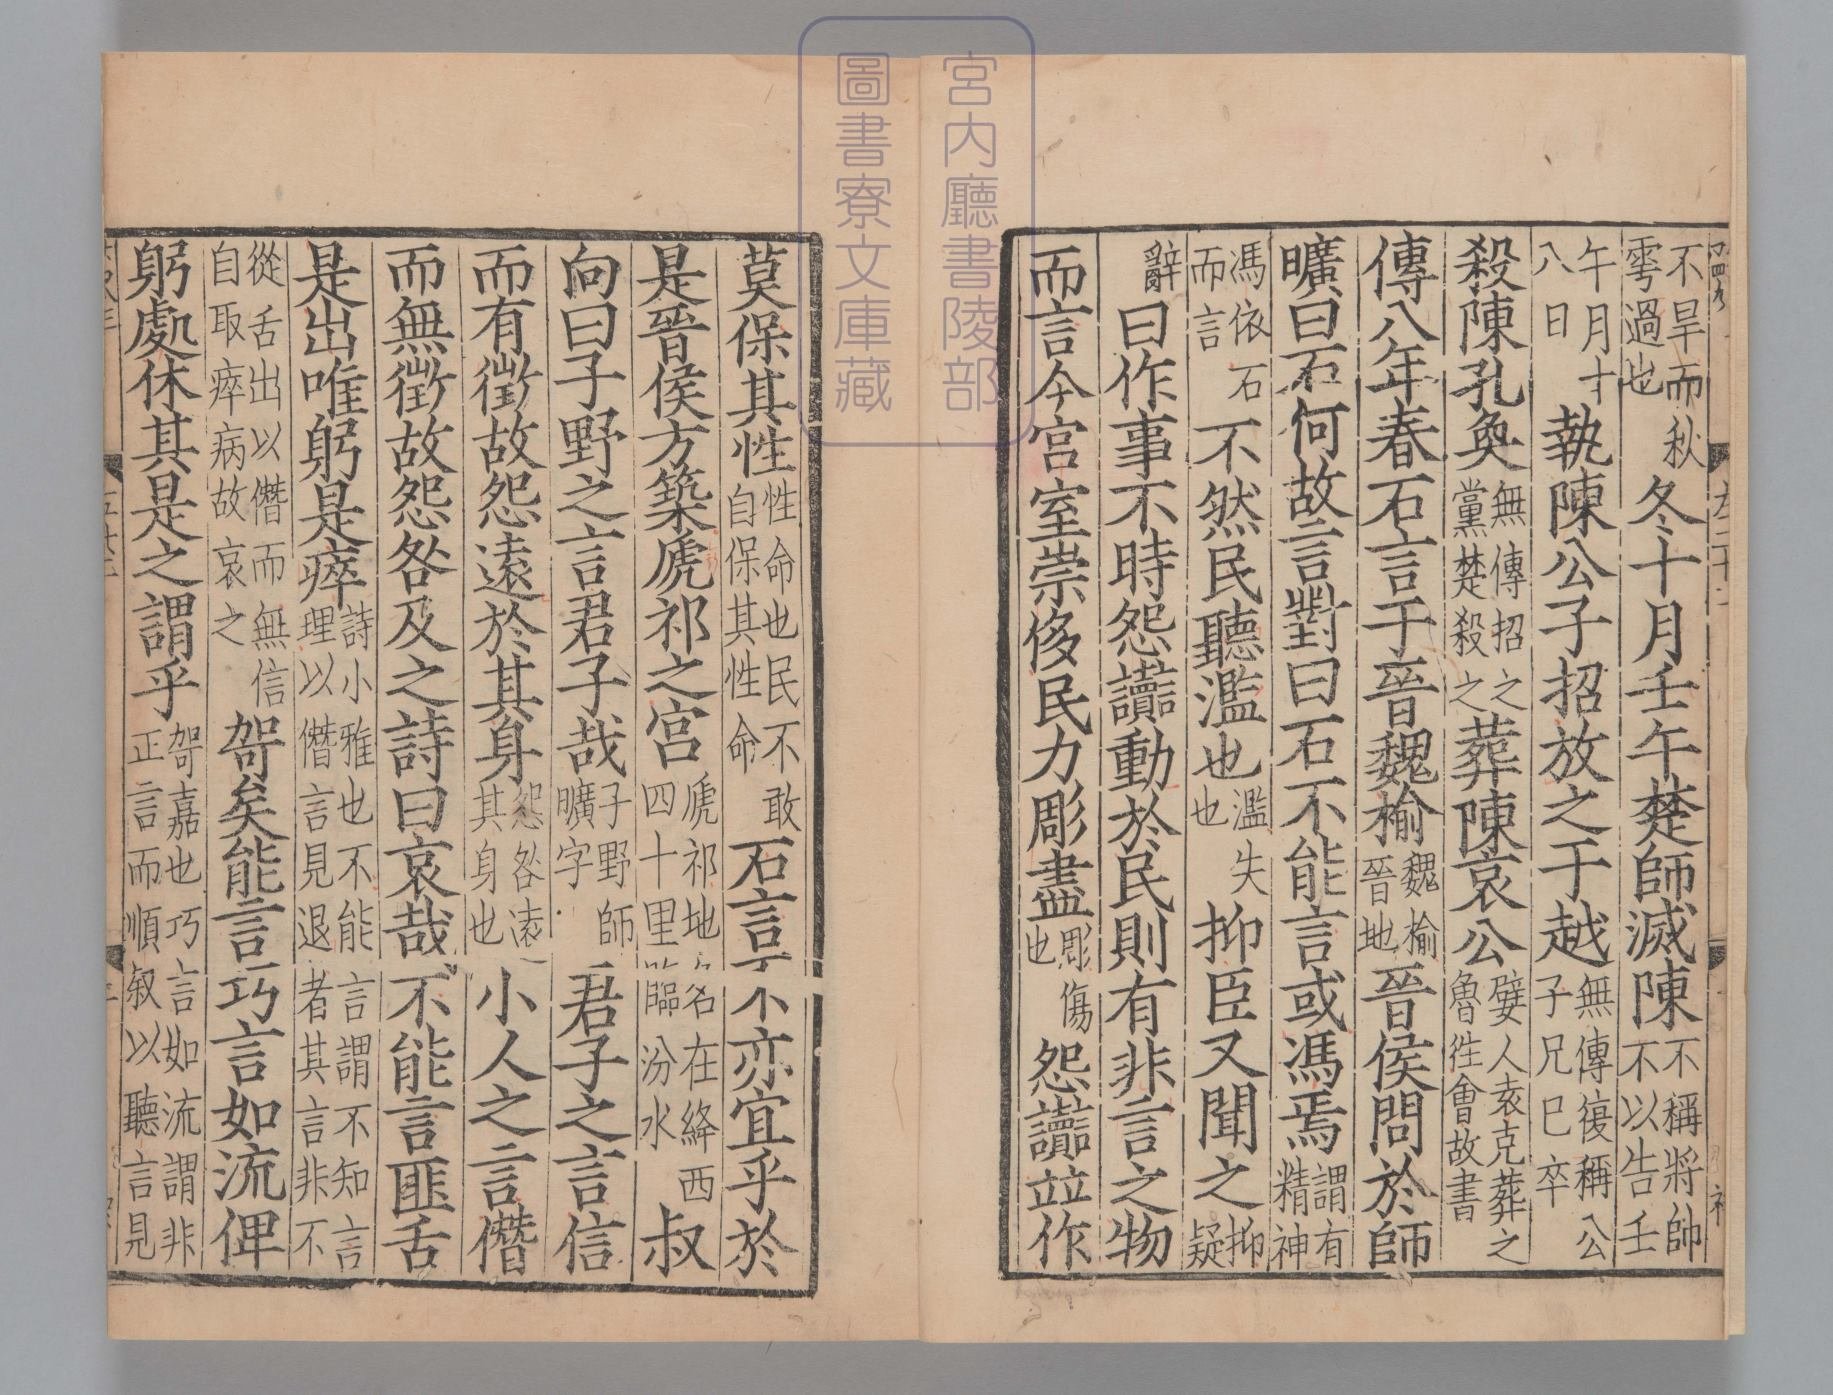 不旱而秋雩過也冬十月壬午楚師滅陳不稱將帥不以告壬
午月十八日執陳公子招放之于越無傳復稱公子兄已卒
殺陳孔奐無傳招之黨楚殺之葬陳哀公嬖人袁克葬之魯徃會故書
傳八年春石言于晉魏榆魏榆晉地晉侯問於師
曠曰石何故言對曰石不能言或馮焉謂有精神
馮依石而言不然民聽濫也濫失也抑臣又聞之抑疑
辭曰作事不時怨讟動於民則有非言之物
而言今宮室崇侈民力彫盡彫傷也怨讟並作
莫保其性性命也民不敢自保其性命石言不亦宜乎於
是晉侯方築虒祁之宮虒祁地名在絳西四十里臨汾水叔
向曰子野之言君子哉子野師曠字君子之言信
而有徵故怨遠於其身怨咎遠其身也小人之言僭
而無徵故怨咎及之詩曰哀哉不能言匪舌
是出唯躬是瘁詩小雅也不能言謂不知言理以僭言見退者其言非不
從舌出以僭而無信自取瘁病故哀之哿矣能言巧言如流俾
躬處休其是之謂乎哿嘉也巧言如流謂非正言而順叙以聽言見
宮内廳書陵部
圖書寮文庫藏